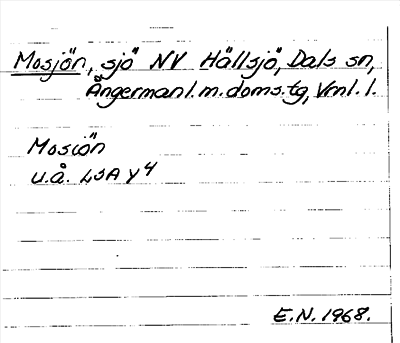 Mosjön, sjö NV Hällsjö, Dals sn,
Ångermanl. m. doms. tg, Vrnl. l.
Mosiön
u.å. LSA Y4
E.N. 1968.